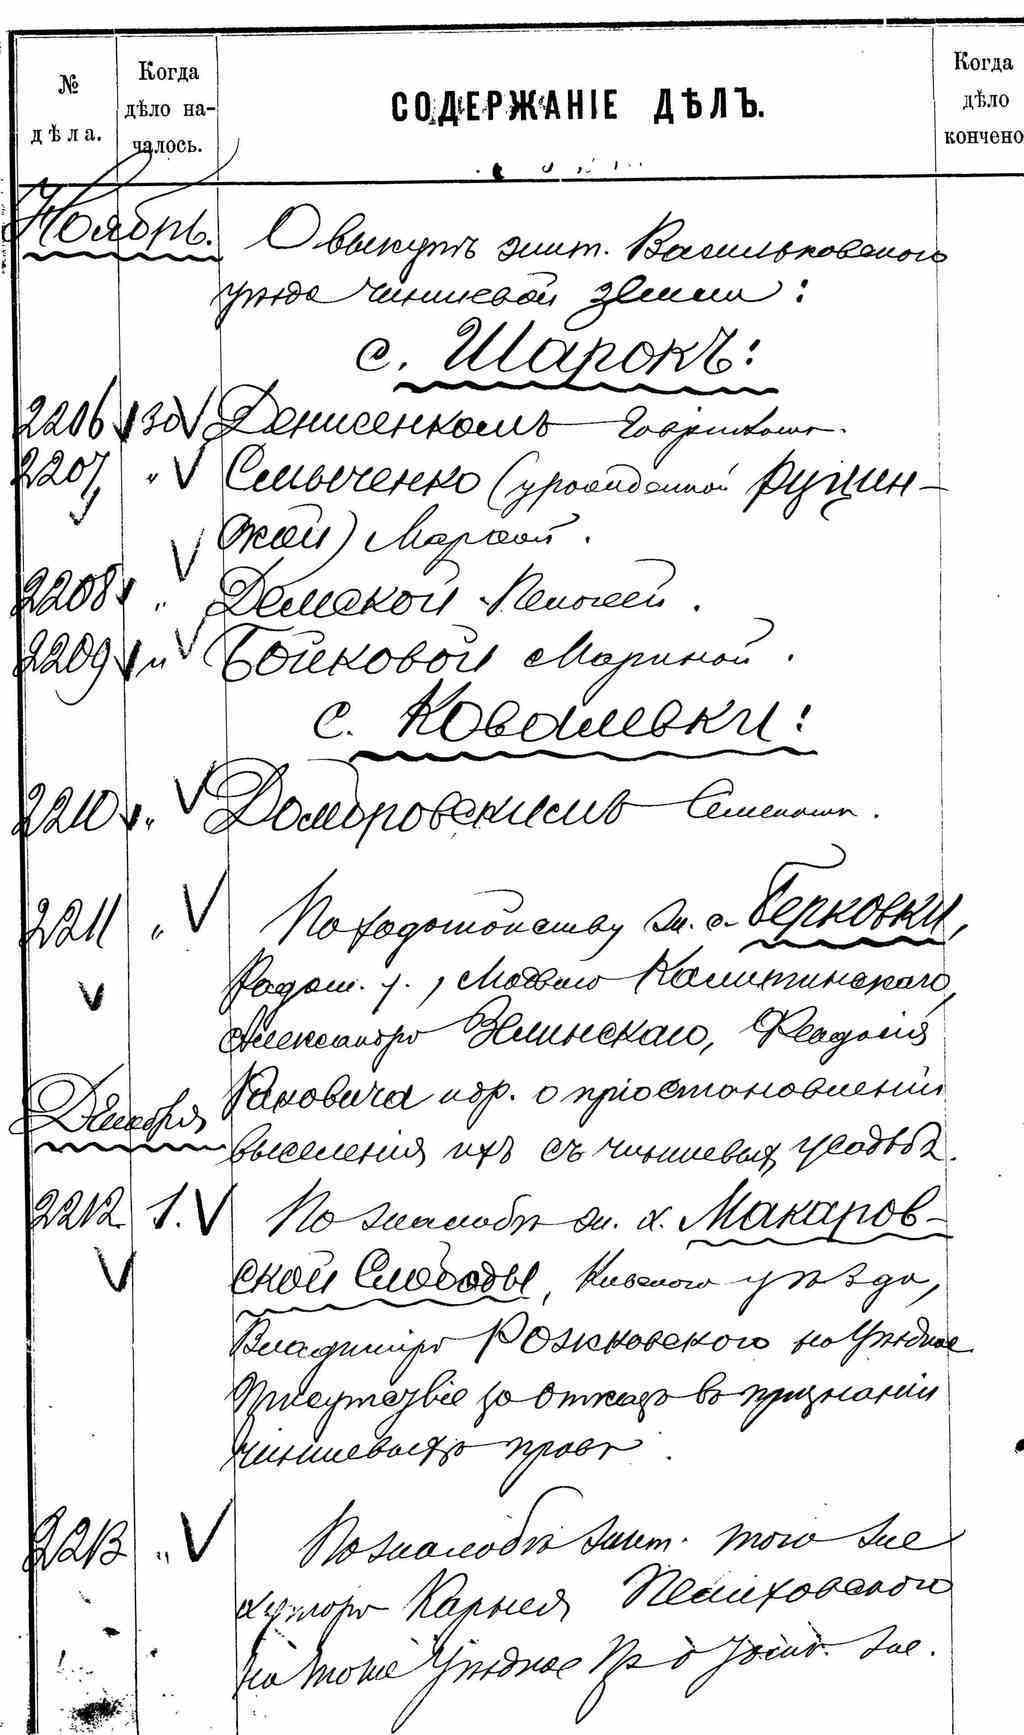 № дѣла.
Когда дѣло началось.
СОДЕРЖАНІЕ ДѢЛЪ.
Когда дѣло кончено
Ноябрь.
О выкупѣ жит. Васильковского
уѣзда чиншевой земли:
с. Шарокъ:
2206 30 Денисенкомъ
2207 " Смыченко (урожденной Ружин-
ской) Марфой.
2208 " Демской Пелагеей.
2209 " Бойковой Мариной.
с. Ковалевки:
2210 " Домбровскимъ Семеномъ.
2211 " По ходатайству жит. с. Берковки,
Радом. у., Матвея Калитинскаго,
Александра Зелинскаго, Феодосія
Раковича и др. о пріостановленіи
Декабря
выселенія ихъ съ чиншевых усадьбъ.
2212 1. По жалобѣ жит. х. Макаров-
ской Слободы, Киевского уѣзда,
Владиміра Рожковского на Уѣздное
Присутствіе за отказъ въ признаніи
чиншевыхъ правъ.
2213 " По жалобѣ жит. того же
хутора Карнея Пелиховского
на тоже Уѣздное Пр. о томъ же.